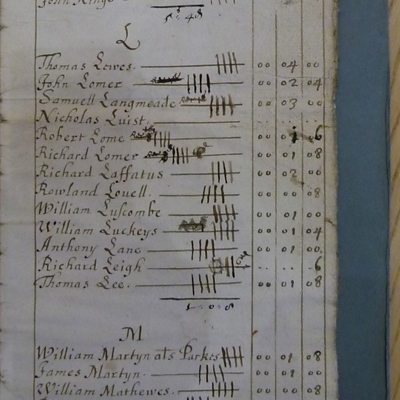 John King
5: 48
L
Thomas Lewes 00 04 00
John Lomer 00 02 04
Samuell Langmeade 00 03 00
Nicholas Luist
Robert Lome 00 1 6
Richard Lomer 00 01 08
Richard Laffatus 00 02 00
Rowland Louell 00 00 08
William Luscombe 00 01 00
William Luckeys 00 01 04
Anthony Lane 00 01 00
Richard Leigh 6
Thomas Lee 00 01 08
1 - 0 - 8
M
William Martyn als Parkes 00 01 08
James Martyn 00 01 00
William Mathewes 00 00 08